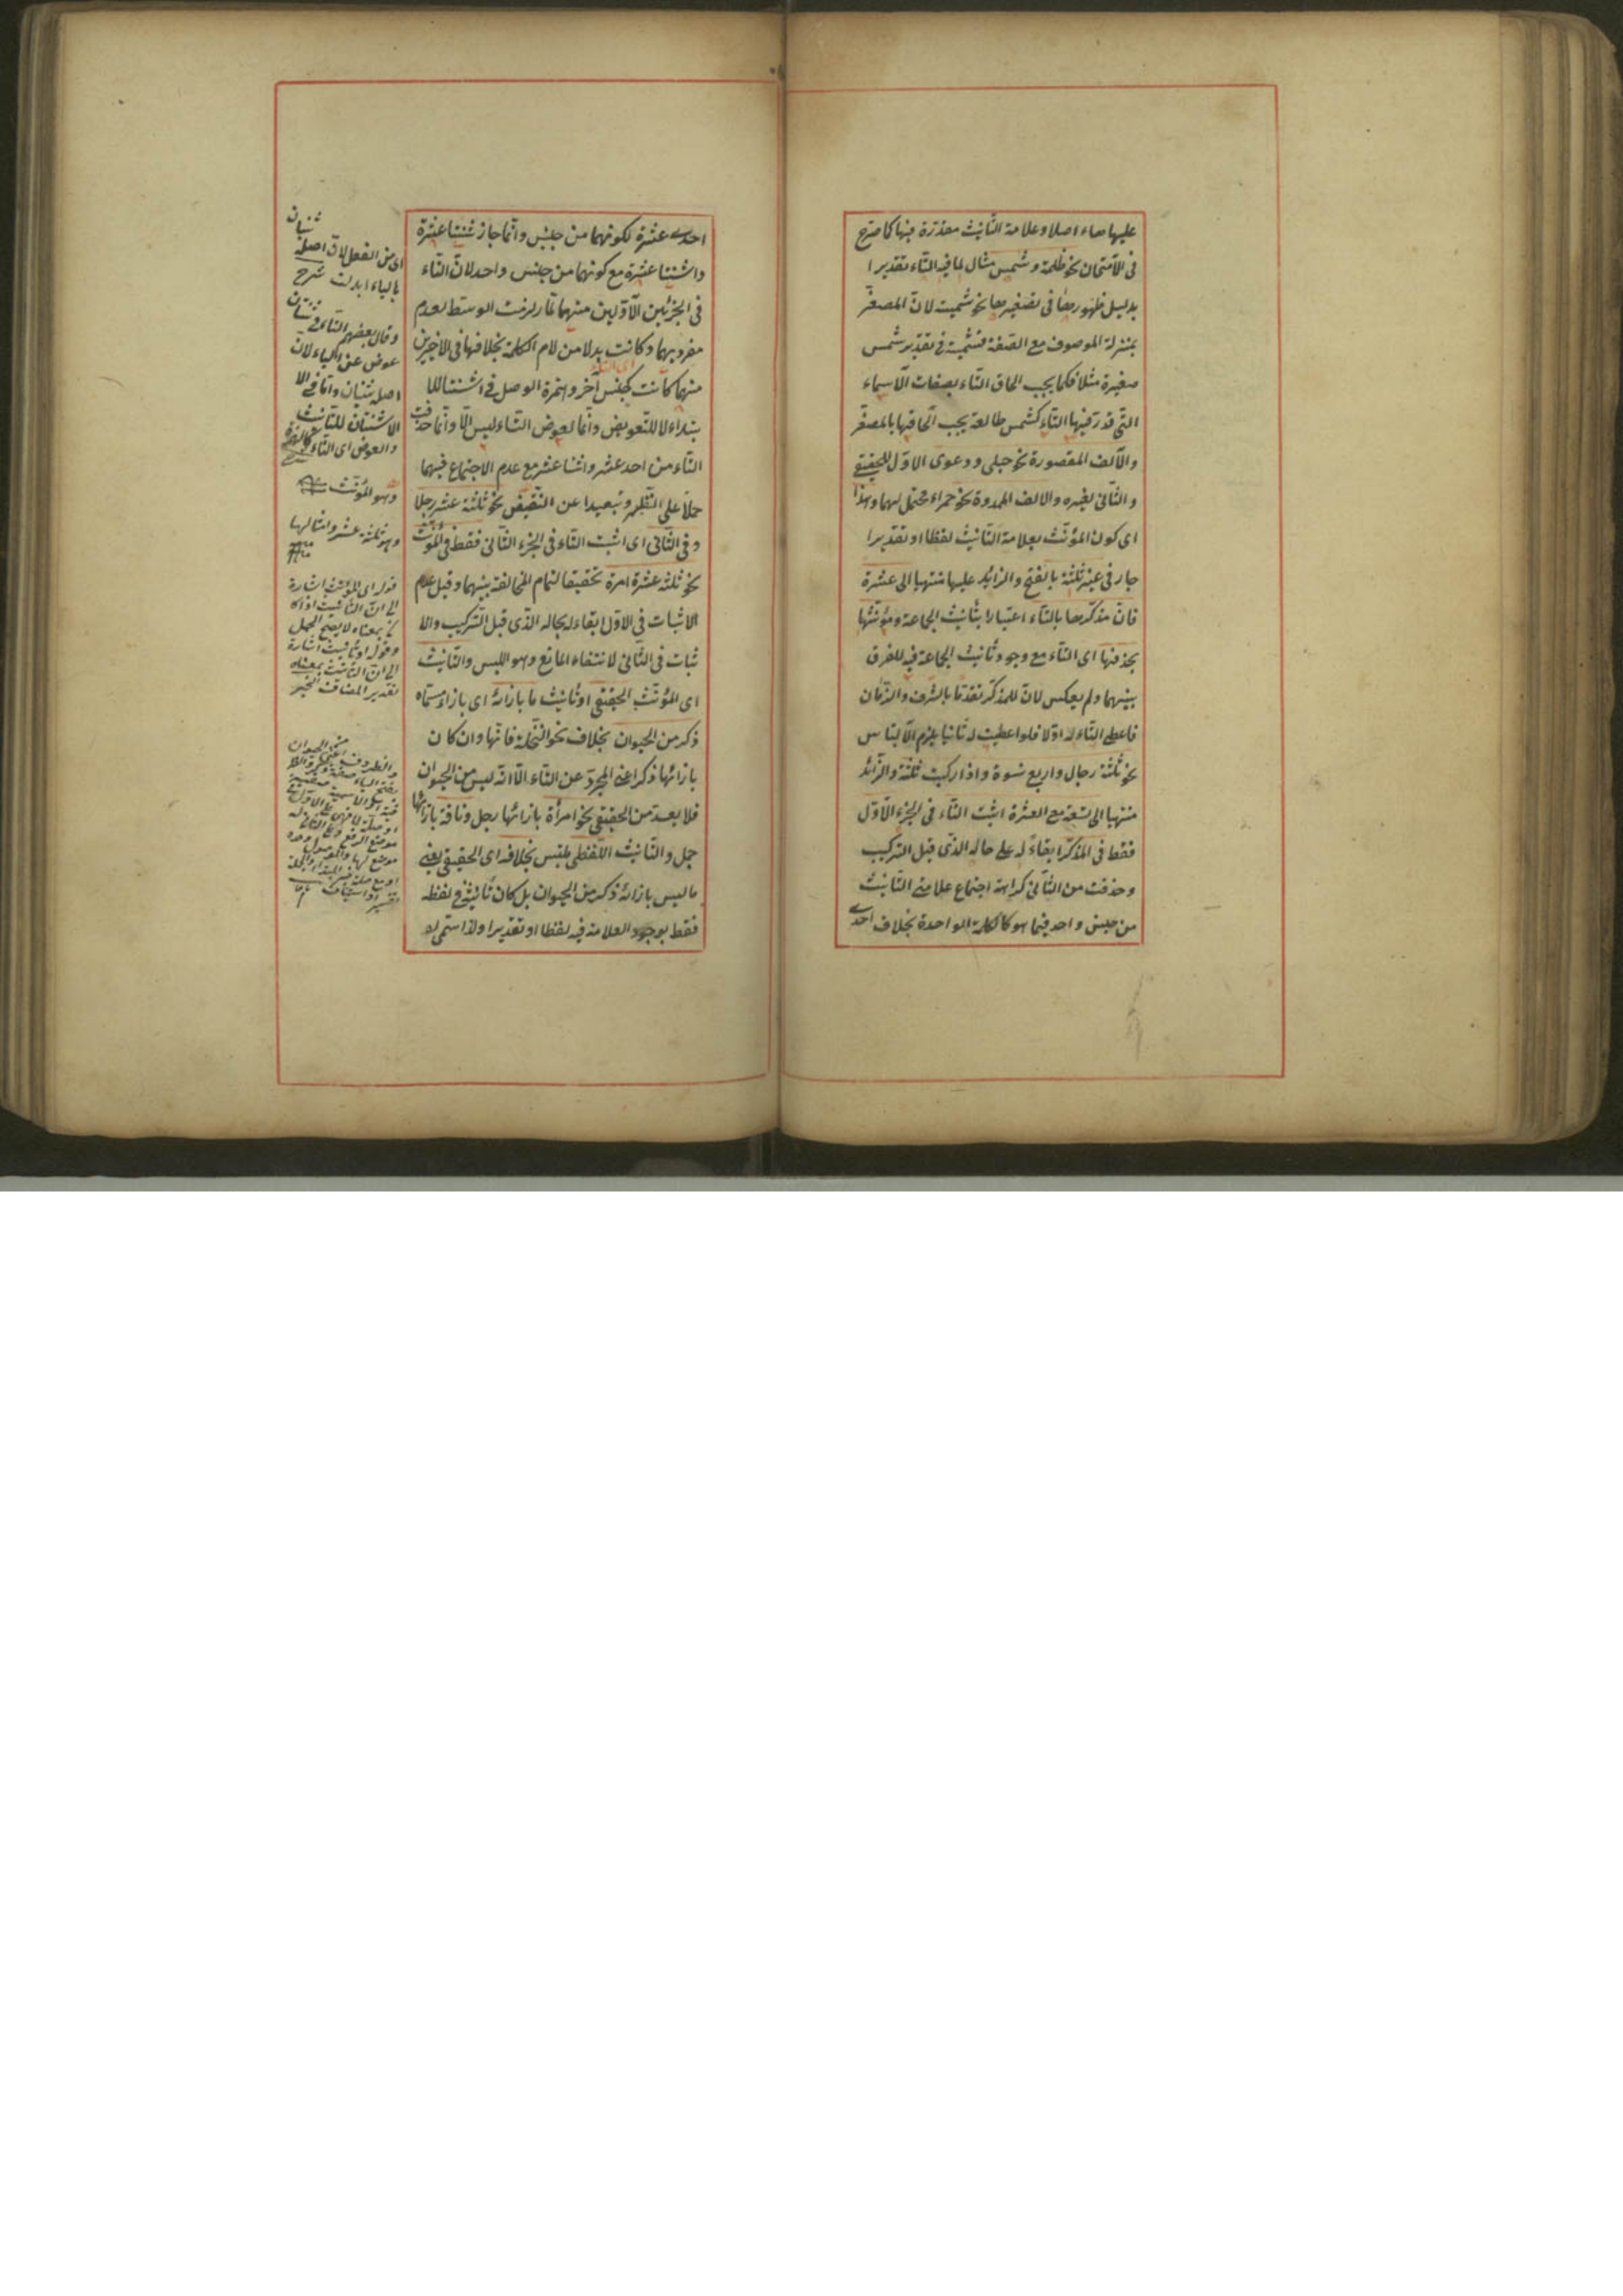 عليها هاء اصلا وعلامة التأنيث مقدرة فيها كما صرح
فى الامتحان نحو ظلمة وشمس مثال لما فيه التاء تقديرا
بدليل ظهورها فى تصغيرها نحو شميسة لان المصغر
بمنزلة الموصوف مع الصفة فشميسة فى تقدير شمس
صغيرة مثلا فكما يجب الحاق التاء بصفات الاسماء
التى قدر فيها التاء كشمس طالعة يجب الحاقها بالمصغر
والالف المقصورة نحو حبلى ودعوى الاول للحقيقى
والثانى لغيره والالف الممدودة نحو حمراء محتمل لهما وهذا
اى كون المؤنث بعلامة التأنيث لفظا او تقديرا
جار فى غير ثلثة بالفتح والزائد عليها منتهيا الى عشرة
فان مذكرها بالتاء اعتبارا بتأنيث الجماعة ومؤنثها
بحذفها اى التاء مع وجود تأنيث الجماعة فيه للفرق
بينهما ولم يعكس لان للمذكر تقدما بالشرف والزمان
فاعطى التاء له اولا فلو اعطيت له ثانيا يلزم الالتباس
نحو ثلثة رجال واربع نسوة واذا ركبت ثلثة والزائد
منتهيا الى تسعة مع العشرة اثبت التاء فى الجزء الاول
فقط فى المذكر ابقاء له على حاله الذى قبل التركيب
وحذفت من الثانى كراهة اجتماع علامتى التأنيث
من جنس واحد فيما هو كالكلمة الواحدة بخلاف احدى
احدى عشرة لكونهما من جنس وانما جاز ثنتا عشرة
واثنتا عشرة مع كونهما من جنس واحد لان التاء
فى الجزئين الاولين منهما لما لزمت الوسط لعدم
مفرديهما وكانت بدلا من لام الكلمة بخلافها فى الاخيرين
اى التاء
منهما كانت كجنس آخر وهمزة الوصل فى اثنتا للا
بتداء لا للتعويض وانما لعوض التاء ليس الا وانما حذفت
التاء من احد عشر واثنا عشر مع عدم الاجتماع فيهما
حملا على النظير وتبعيدا عن النقيض نحو ثلثة عشر رجلا
وفى الثانى اى اثبت التاء فى الجزء الثانى فقط فى المؤنث
نحو ثلث عشرة امرة تحقيقا لتمام المخالفة بينهما وقيل عدم
الاثبات فى الاول ابقاء له بحاله الذى قبل التركيب والا
ثبات فى الثانى لانتفاء المانع وهو اللبس والتأنيث
اى المؤنث الحقيقى او تأنيث ما بازائه اى بازاء مسماه
ذكر من الحيوان بخلاف نحو النخلة فانها وان كان
بازائها ذكر اعنى المجرد عن التاء الا انه ليس من الحيوان
فلا يعد من الحقيقى نحو امرأة بازائها رجل وناقة بازائها
جمل والتأنيث اللفظى ملتبس بخلافه اى الحقيقى يعنى
ما ليس بازائه ذكر من الحيوان بل كان تأنيثه فى لفظه
فقط بوجود العلامة فيه لفظا او تقديرا ولذا سمى له
ثنيان
اى من الفعل لان اصله
بالياء ابدلت شرح
وقال بعضهم التاء فى ثنتان
عوض عن الياء لان
اصله ثنيان واما فى الا
الاثنتان للتأنيث
والعوض اى التاء
وهو المؤنث
وهو ثلثة عشر وامثالها
قوله اى المؤنث اشارة
الى ان التأنيث اذا كا
ن بمعناه لا يصح الحمل
وقوله او تأنيث اشارة
الى ان التأنيث بمعناه
بتقدير المضاف فى الخبر
من الحيوان